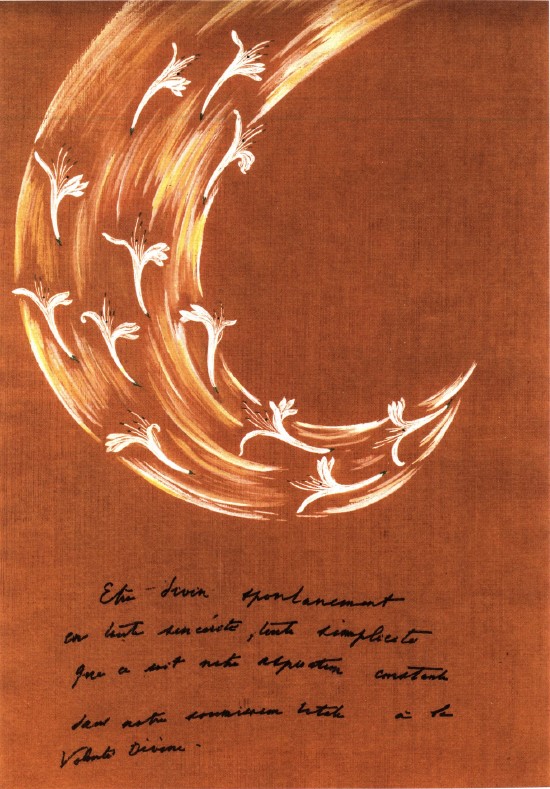 Etre divin spontanement
en toute sincérité, toute simplicité
Que ce soit notre aspiration constante
dans notre soumission totale à la
Volonté Divine.